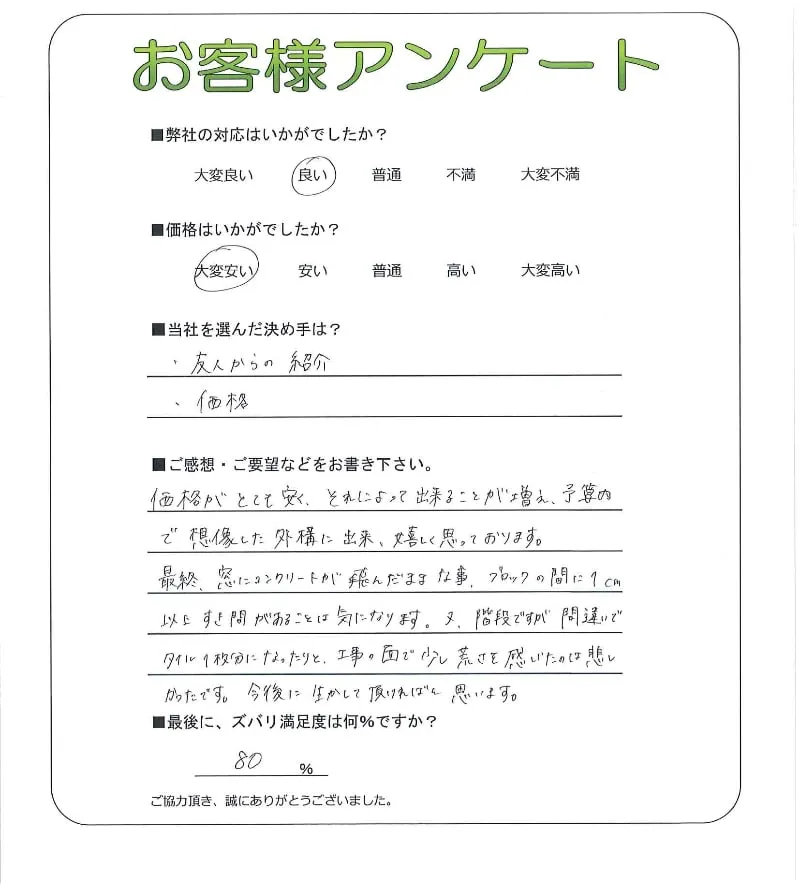 お客様アンケート
■弊社の対応はいかがでしたか？
大変良い 良い 普通 不満 大変不満
■価格はいかがでしたか？
大変安い 安い 普通 高い 大変高い
■当社を選んだ決め手は？
・友人からの 紹介
・価格
■ご感想・ご要望などをお書き下さい。
価格が とても 安く、それによって 出来ることが 増え、予算内
で 想像した 外構に 出来、嬉しく思っております。
最終、窓にコンクリートが 飛んだままな事、ブロックの間に1cm
以上 すき間があることは 気になります。又、階段ですが 間違いで
タイル1枚分になったりと、工事の面で少し荒さを感じたのは悲し
かったです。今後に 生かして頂ければと 思います。
■最後に、ズバリ満足度は何%ですか？
80 %
ご協力頂き、誠にありがとうございました。